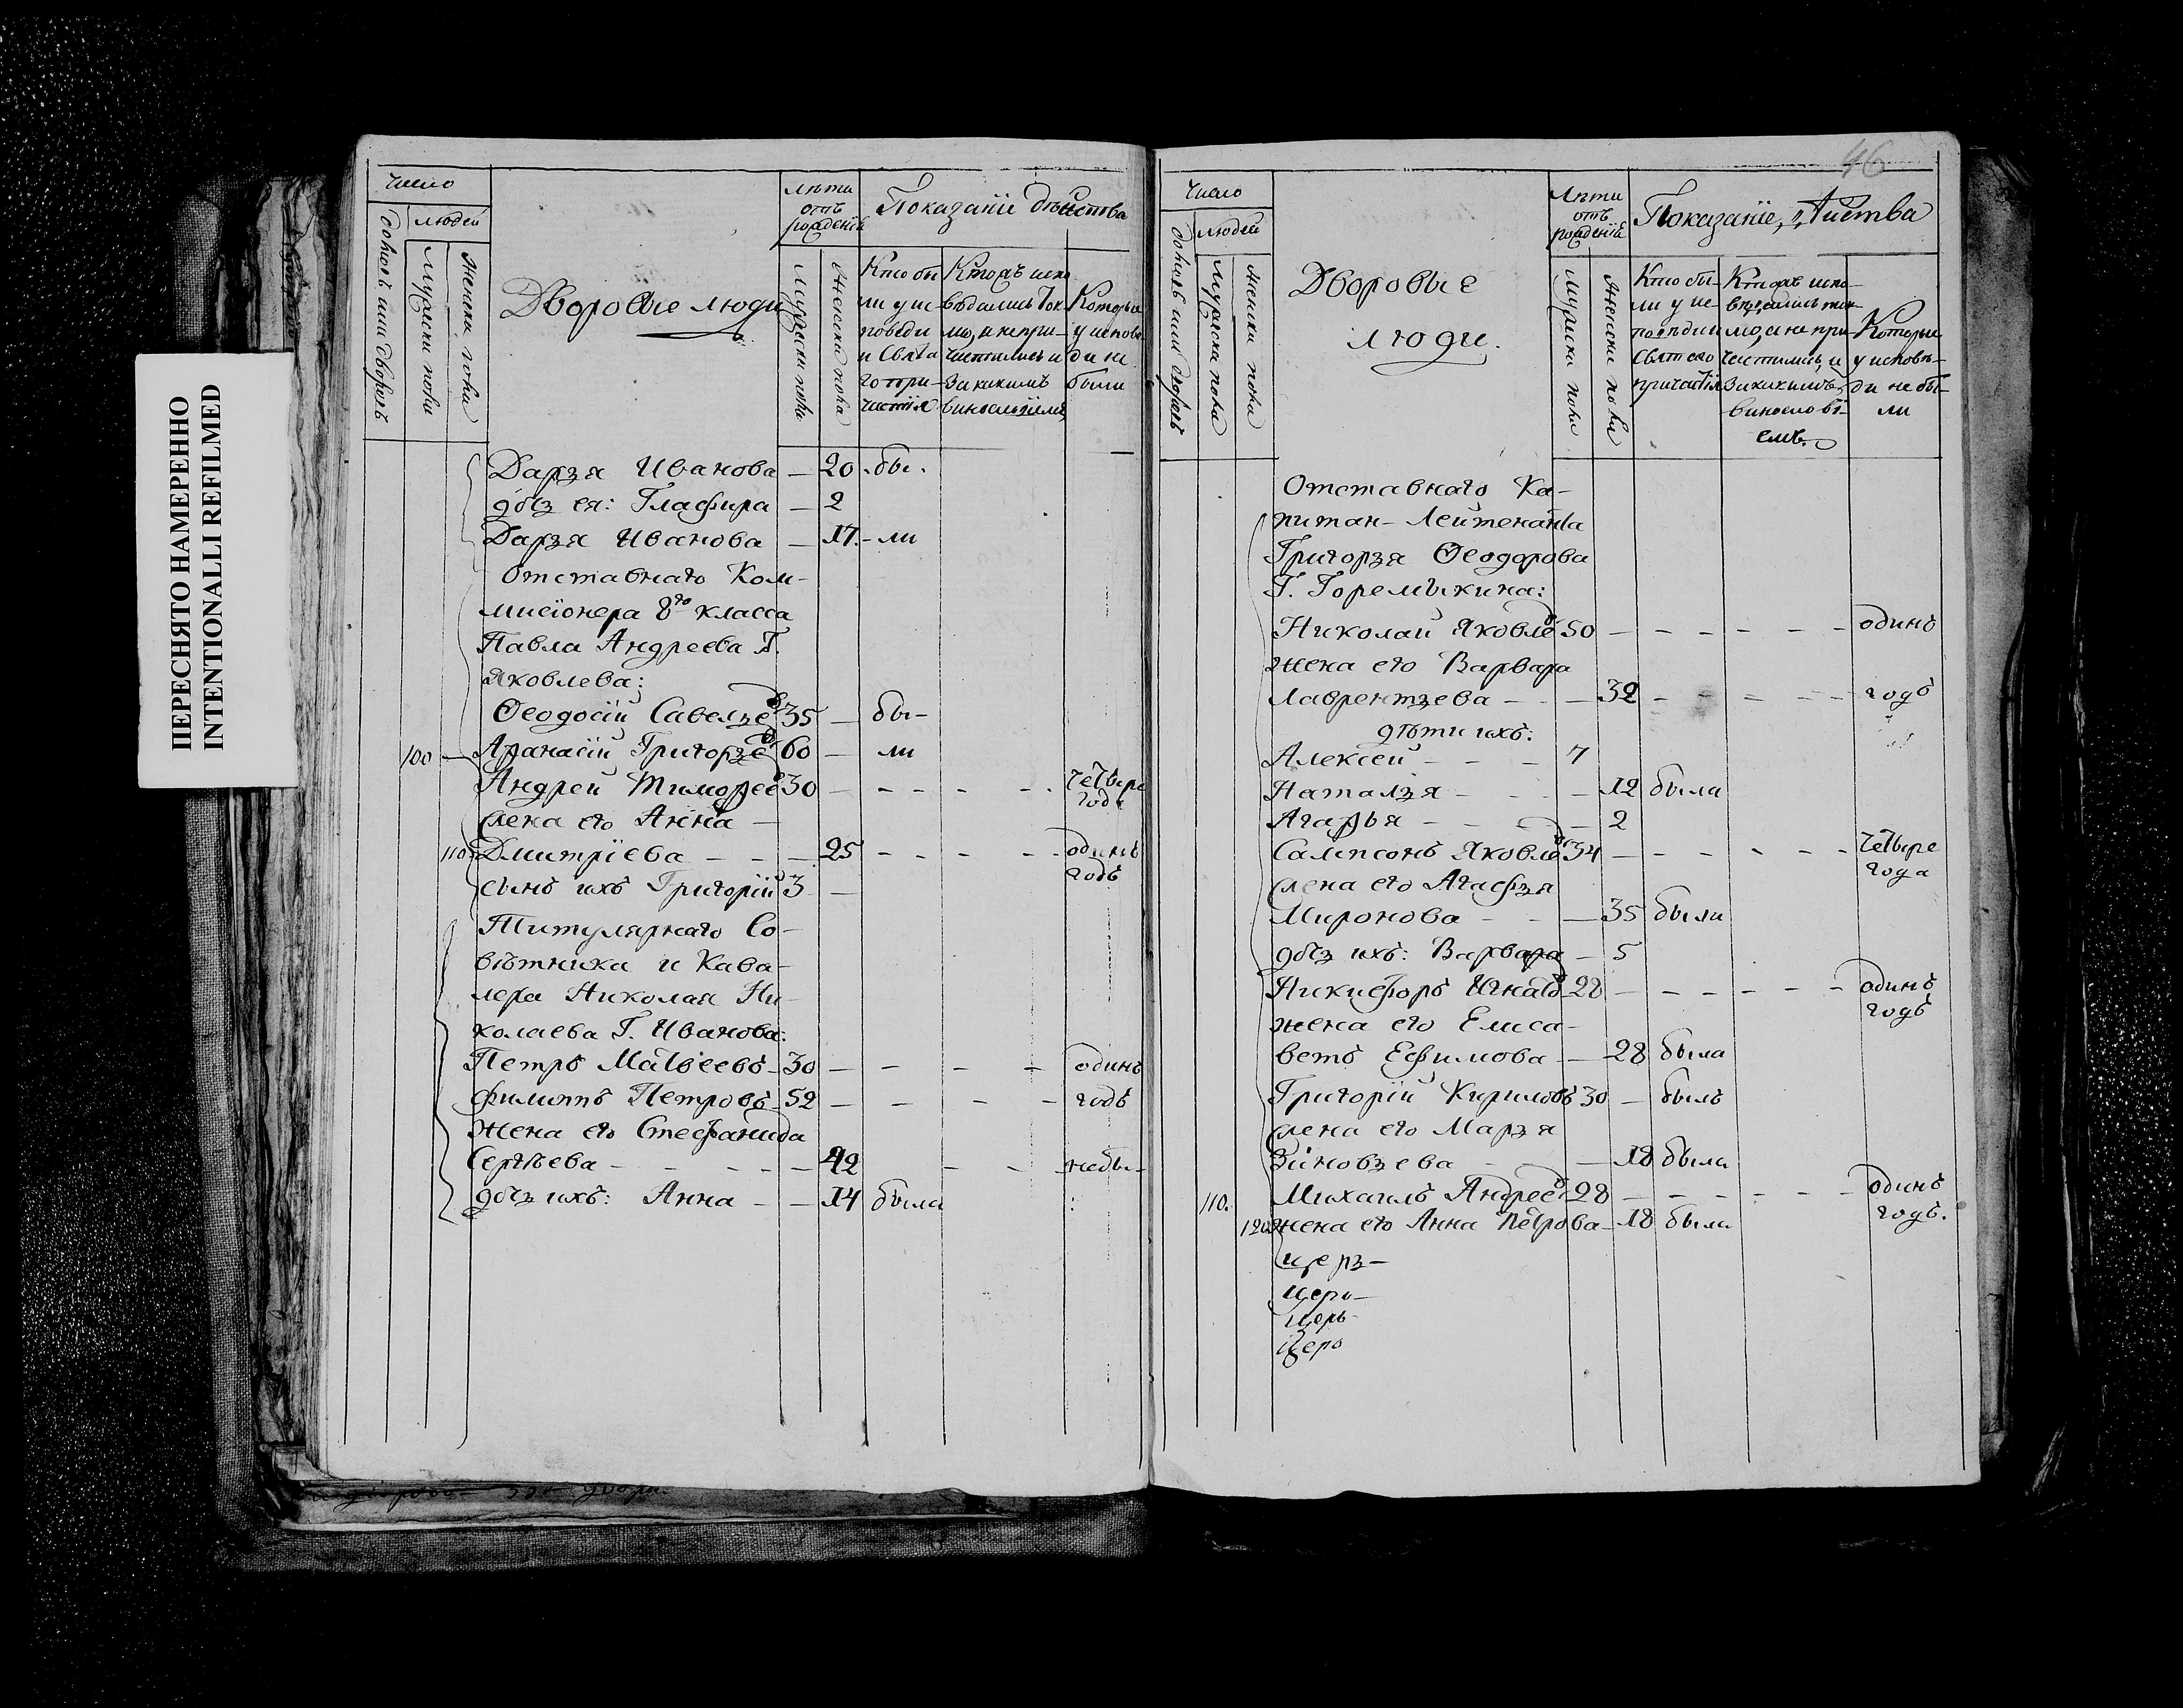 ПЕРЕСНЯТО НАМЕРЕННО
INTENTIONALLI REFILMED
Число
домовъ или дворовъ
людей
Мужеска пола
Женска пола
Дворовые люди
Лѣта
отъ
рожденїя
Мужеска пола
Женска пола
Показанїе дѣйства
Кто бы
ли у ис
поведи
и Свята
го при-
частїя
Кто жъ испо
вѣдались Ток
мо, а непри-
частились и
за какимъ
винословїемъ
Которые
у испове
ди не
были
Дарья Иванова — 20 бы-
дочь ея: Глафира — 2
Дарья Иванова — 17 - ли
Отставнаго Ком-
мисїонера 8го класса
Павла Андреева Г.
Яковлева:
Ѳеодосїй Савельевъ 35 — бы-
100 Аѳанасїй Григорьевъ 60 — ли
Андрей Тимоѳеевъ 30 — — — — четыре
года
жена его Анна —
110 Дмитрїева — — — 25 — — — — одинъ
годъ
сынъ ихъ Григорїй 3 —
Титулярнаго Со-
вѣтника и Кава-
лера Николая Ни-
колаева Г. Иванова:
Петръ Матвеевъ - 30 — — — — одинъ
Филиппъ Петровъ 52 — — — — годъ
жена его Стефанида
Сергѣева — — — — 42 — — небы-
дочь ихъ: Анна — — 14 была
46
Число
домовъ или дворовъ
людей
Мужеска пола
Женска пола
Дворовые
люди.
Лѣта
отъ
рожденїя
Мужеска пола
Женска пола
Показанїе, Дѣйства
Кто бы-
ли у ис-
повѣди и
Святаго
причастїя
Кто жъ испо-
вѣдались ток-
мо, а не при-
частились, и
за какимъ
винословї-
емъ.
Которые
у исповѣ-
ди не бы-
ли
Отставнаго Ка-
питан-Лейтенанта
Григорья Ѳеодорова
Г. Горемыкина:
Николай Яковлевъ 50 — — — — — — одинъ
жена его Варвара
Лаврентьева — — — 32 — — — — — годъ
дѣти ихъ:
Алексей — — — 7
Наталья — — — 12 была
Агафья — — — 2
Сампсонъ Яковлевъ 34 — — — — — — четыре
года
жена его Агафья
Миронова — — — 35 были
дочь ихъ: Варвара — 5
Никифоръ Игнатовъ 28 — — — — — — одинъ
годъ
жена его Елиса-
ветъ Ефимова — — 28 была
Григорїй Кириловъ 30 — былъ
жена его Марья
Зиновьева — — 18 была
110. Михаилъ Андреевъ 28 — — — — — — одинъ
годъ.
120 жена его Анна Петрова — 18 была